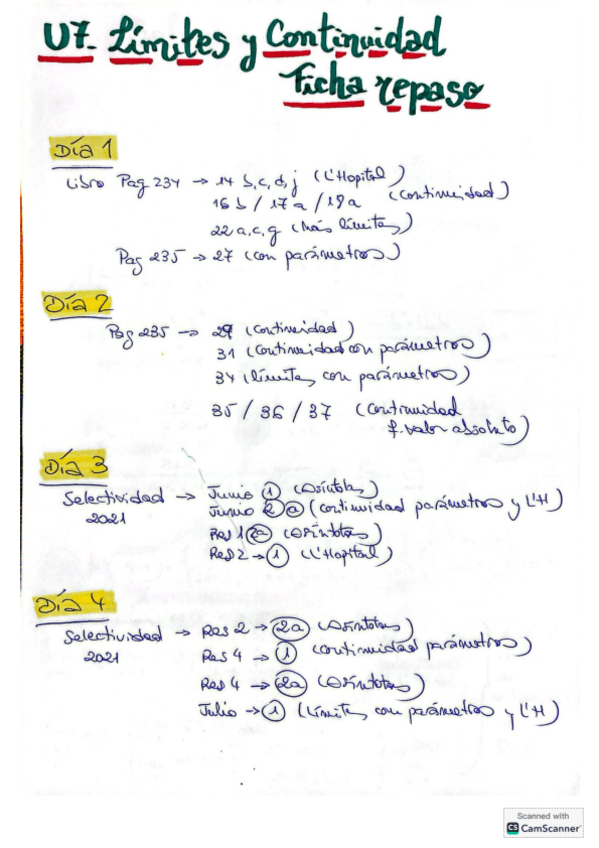 U7. Límites y Continuidad
Ficha repaso
Día 1
Libro Pag 234 → 14 b, c, d, j (L'Hopital)
16 b / 17 a / 19 a (continuidad)
22 a, c, g (más límites)
Pag 235 → 27 (con parámetros)
Día 2
Pag 235 → 29 (continuidad)
31 (continuidad con parámetros)
34 (límites con parámetros)
35 / 36 / 37 (continuidad
f. valor absoluto)
Día 3
Selectividad → Junio 1 (Asíntotas)
2021 Junio 2 a (continuidad parámetros y L'H)
Res 1 2a (Asíntotas)
Res 2 → 1 (L'Hopital)
Día 4
Selectividad → Res 2 → 2a (Asíntotas)
2021 Res 4 → 1 (continuidad parámetros)
Res 4 → 2a (Asíntotas)
Julio → 1 (límites con parámetros y L'H)
Scanned with
CS CamScanner